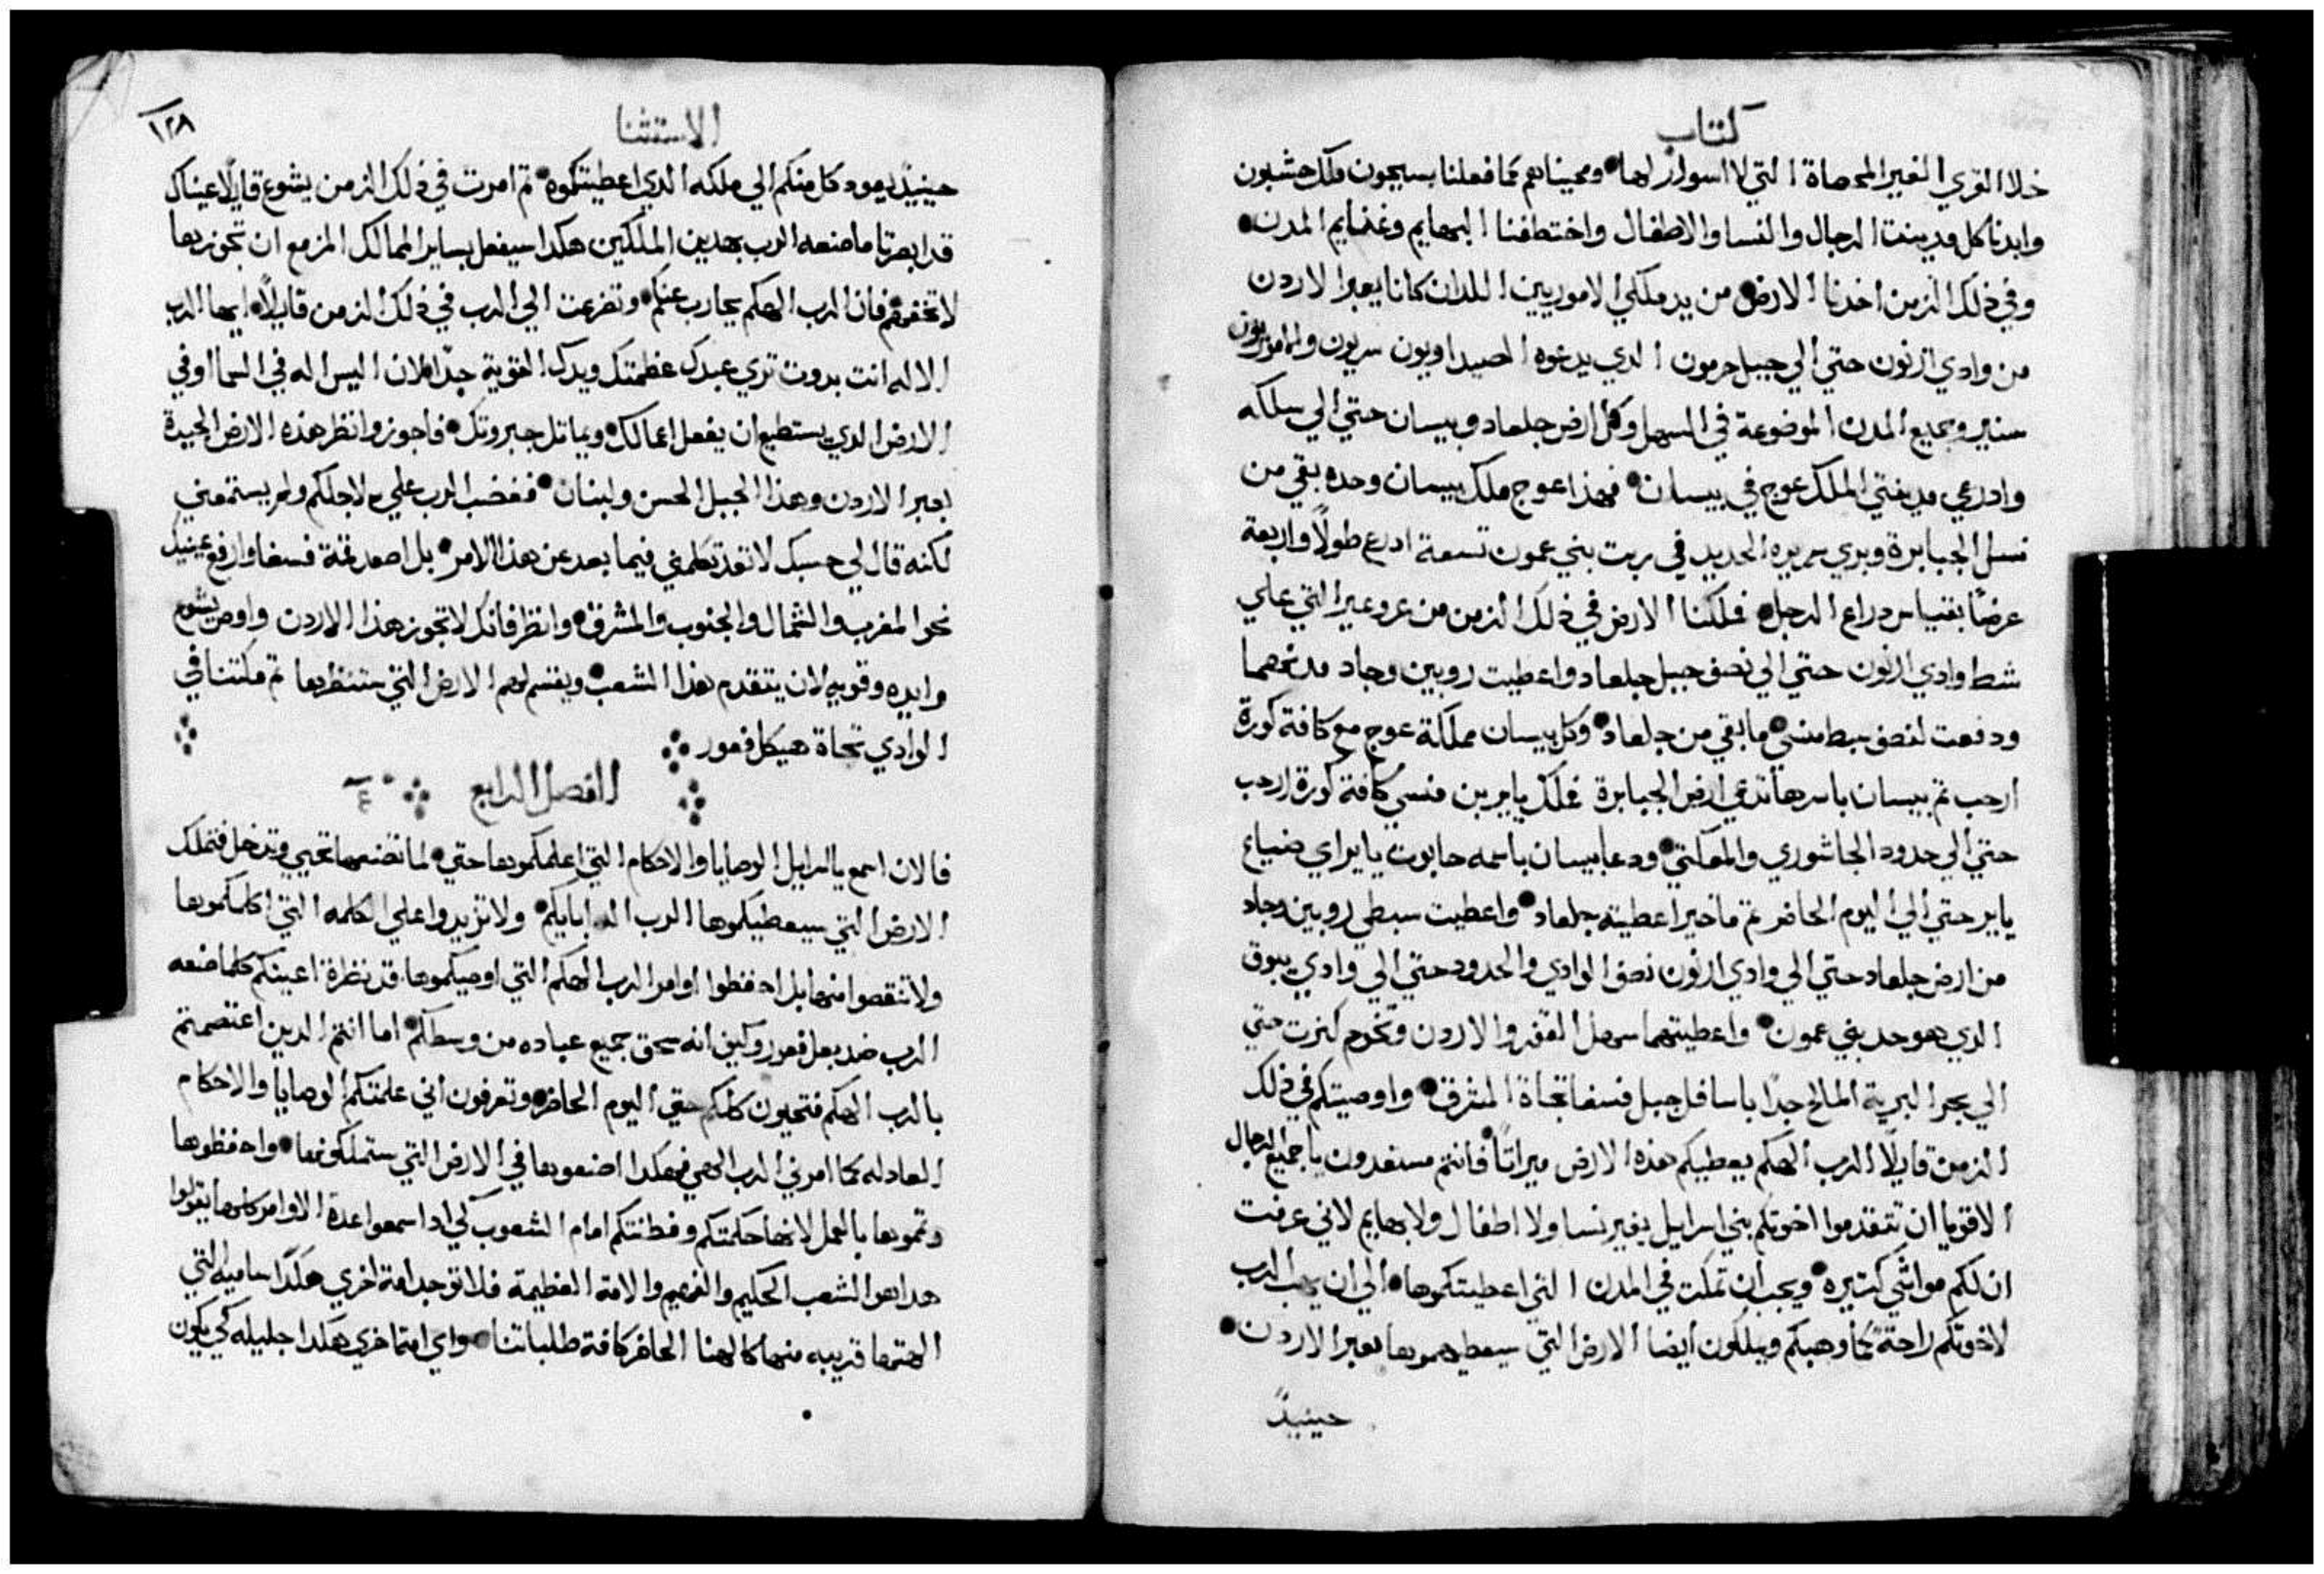 كتاب
خلا القري الغير المحصاة التي لا اسوار لها ومحيناهم كما فعلنا بسيحون ملك حشبون
وابدنا كل مدينت الرجال والنسا والاطفال واختطفنا البهايم وغنايم المدن
وفي ذلك الزمن اخدنا الارض من يد ملكي الاموريين اللدان كانا بعبر الاردن
من وادي ارنون حتي الي جبل حرمون الدي يدعوه الصيداويون سريون والاموريون
سنير وجميع المدن الموضوعة في السهل وكل ارض جلعاد وبيسان حتي الي سلكه
وادرعي مدينتي الملك عوج في بيسان فهذا عوج ملك بيسان وحده بقي من
نسل الجبابرة ويري سريره الحديد في ربت بني عمون تسعة ادرع طولًا واربعة
عرضًا بقياس دراع الرجل فملكنا الارض في ذلك الزمن من عروعير التي علي
شط وادي ارنون حتي الي نصف جبل جلعاد واعطيت روبين وجاد مدنهما
ودفعت لنصف سبط منسي ما بقي من جلعاد وكل بيسان مملكة عوج مع كافة كورة
ارجب ثم بيسان باسرها تدعي ارض الجبابرة فملك يايربن منسي كافة كورة ارجب
حتي الي حدود الجاشوري والمعكتي ودعا بيسان باسمه حابوت يايراي ضياع
ياير حتي الي اليوم الحاضر ثم ماخير اعطيته جلعاد واعطيت سبطي روبين وجاد
من ارض جلعاد حتي الي وادي ارنون نصف الوادي والحدود حتي الي وادي يبوق
الدي هو حد بني عمون واعطيتهما سهل القفر والاردن وتخوم كنرت حتي
الي بحر البرية المالح جدًا باسافل جبل فسغا تجاة المشرق واوصيتكم في ذلك
الزمن قايلًا الرب الهكم يعطيكم هذه الارض ميراتًا فانتم مستعدون يا جميع الرجال
الاقويا ان تتقدموا اخوتكم بني اسرايل بغير نسا ولا اطفال ولا بهايم لاني عرفت
ان لكم مواشي كتيره ويجب ان تمكت في المدن التي اعطيتكموها الي ان يهب الرب
لاخوتكم راحة كما وهبكم ويملكون ايضا الارض التي سيعطيهموها بعبر الاردن
حينيدٍ
الاستثنا
١٢٨
حينيدٍ يعود كل منكم الي ملكه الدي اعطيتكموه ثم امرت في ذلك الزمن يشوع قايلًا عيناك
قد ابصرتا ما صنعه الرب بهدين الملكين هكدا سيفعل بساير الممالك المزمع ان تجوز بها
لا تخفهم فان الرب الهكم يحارب عنكم وتضرعت الي الرب في ذلك الزمن قايلًا ايها الرب
الاله انت بدوت تري عبدك عظمتك ويدك القوية جدًا لان اليس اله في السما او في
الارض الدي يستطيع ان يفعل اعمالك ويماتل جبروتك فاجوز وانظر هذه الارض الجيدة
بعبر الاردن وهذا الجبل الحسن ولبنان فغضب الرب علي لاجلكم ولم يستمعني
لكنه قال لي حسبك لا تعد تكلمني فيما بعد عن هذا الامر بل اصعد قمة فسغا وارفع عينيك
نحو المغرب والشمال والجنوب والمشرق وانظر فانك لا تجوز هذا الاردن واوص يشوع
وايده وقويه لان يتقدم هذا الشعب ويقسم لهم الارض التي ستنظرها ثم مكتنا في
الوادي تجاة هيكل فعور
الفصل الرابع ٤
فالان اسمع يا اسرايل الوصايا والاحكام التي اعلمكموها حتي لما تصنعها تحيي وتدخل فتملك
الارض التي سيعطيكموها الرب اله ابايكم ولا تزيدوا علي الكلمه التي اكلمكموها
ولا تنقصوا منها بل احفظوا اوامر الرب الهكم التي اوصيكموها قد نظرة اعينكم كلما صنعه
الرب ضد بعل فعور وكيف انه سحق جميع عباده من وسطكم اما انتم الدين اعتصمتم
بالرب الهكم فتحيون كلكم حتي اليوم الحاضر وتعرفون اني علمتكم الوصايا والاحكام
العادله كما امرني الرب الهي فهكدا اصنعوها في الارض التي ستملكونها واحفظوها
وتموها بالعمل لانها حكمتكم وفطنتكم امام الشعوب لكي ادا سمعوا عدة الاوامر كلها يقولوا
هداهو الشعب الحكيم والفهيم والامة العظيمة فلا توجد امة اخري هكدا ساميه التي
الهتها قريبه منها كالهنا الحاضر كافة طلباتنا واي امة اخري هكدا جليله كي يكون